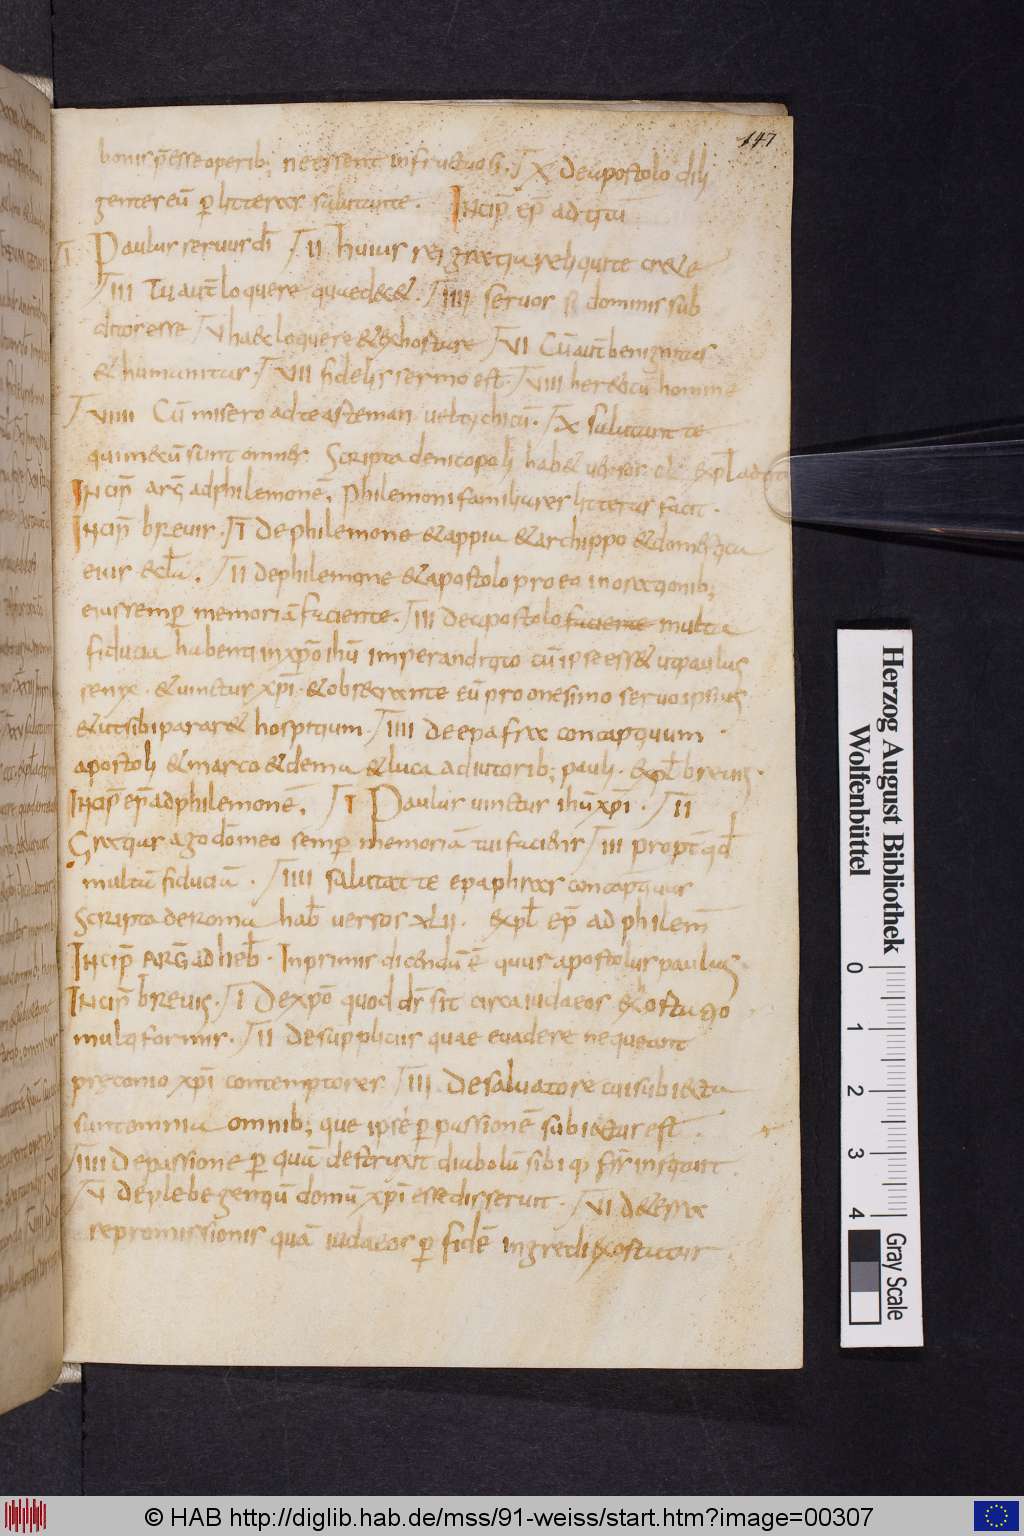 147
bonis p̄esse operib; ne essent infructuosi. X De apostolo dili
genter eū ꝑ litteras salutante. INcip̄ ep̄ ad titū
I Paulus servus dī II huius rei gratia reliqui te crete
III Tu aut̄ loquere quae dec&. IIII servos s; dominis sub
ditos esse V haec loquere &exhortare VI Cū aut̄ benignitas
& humanitas. VII fidelis sermo est. VIII hereticū homine
VIIII Cū misero ad te asteman vel tychicū. X salutant te
qui mecū sunt omnes. Scripta de nicopoli hab& versos expl̄ ad tit
INcip̄ arḡ ad philemonē. Philemoni familiares litteras facit.
INcip̄ breuis. I De philemone &appia &archippo &domestica
eius eccl̄a. II De philemone &apostolo pro eo in orationib;
eius semp̄ memoriā faciente. III De apostolo faciente multa
fiducia habenti in xp̄o ihū imperandi tito cū ipse ess& ut paulus
senex. &uinctus xp̄i. &obsecrante eū pro onesimo servo ipsius
&ut sibi parar& hospitium. IIII De epafra concaptiuum
apostoli &marco &dema &luca adiutorib; pauli. expl̄ breuis.
INcip̄ ep̄ ad philemonē. I Paulus uinctus ihū xp̄i. II
Gratias ago dō meo semp̄ memoriā tui faciens III propt̄ qd̄
multū fiduciā. IIII salutat te epaphras concaptiuus
Scripta de Roma hab̄ versos XLII. expl̄ ep̄ ad philem̄
INcip̄ ARḠ ad heb̄. Inprimis dicendū ē quur apostolus paulus
INcip̄ breuis. I De xp̄o quod dī sit circa iudaeos &ostatio
multiformis. II De suppliciis quae euadere nequeant
preconio xp̄i contemptores III De saluatore cui subiecta
sunt omnia omnib; que ipse ꝑ passionē subiectus est.
IIII De passione ꝑ quā destruxit diabolū sibi q; frīs instant
V De plebe gentiū domū xp̄i esse disserunt. VI De terra
repromissionis quā iudaeos ꝑ fidē ingredi exostatur.
Herzog August Bibliothek
Wolfenbüttel
0 1 2 3 4
Gray Scale
© HAB http://diglib.hab.de/mss/91-weiss/start.htm?image=00307